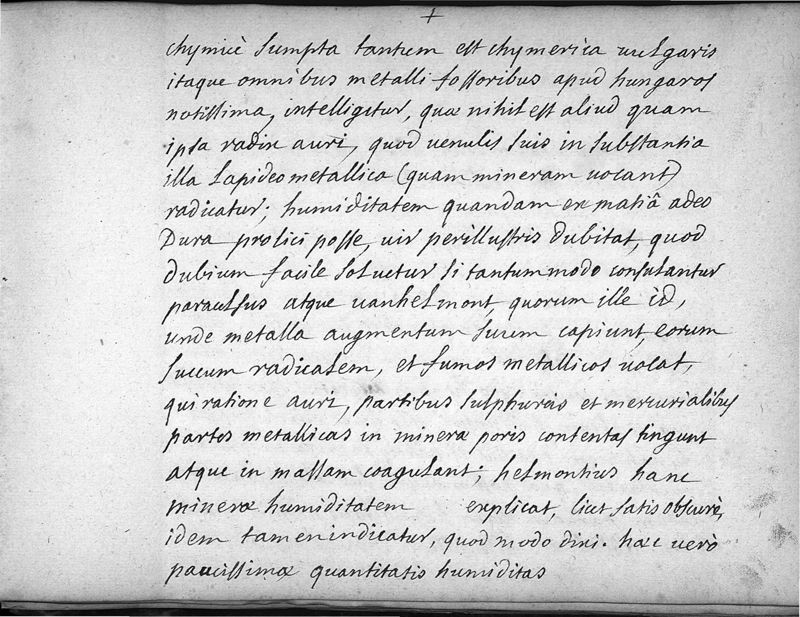 +
chymicè sumpta tantum est chymerica uulgaris
itaque omnibus metalli fossoribus apud hungaros
notissima, intelligitur, quæ nihil est aliud quam
ipsa radix auri, quod uenulis suis in substantia
illa lapideometallica (quam mineram uocant)
radicatur; humiditatem quandam ex matiâ adeo
Dura prolici posse, uir perillustris dubitat, quod
dubium facile soluetur si tantummodo consulantur
paracelsus atque uanhelmont, quorum ille id,
unde metalla augmentum suum capiunt, eorum
succum radicalem, et fumos metallicos uocat,
qui ratione auri, partibus sulphureis et mercurialibus
partes metallicas in mineræ poris contentas tingunt
atque in massam coagulant; helmontius hanc
mineræ humiditatem explicat, licet satis obscurè,
idem tamen indicatur, quod modo dixi. hæc uerò
paucissimæ quantitatis humiditas